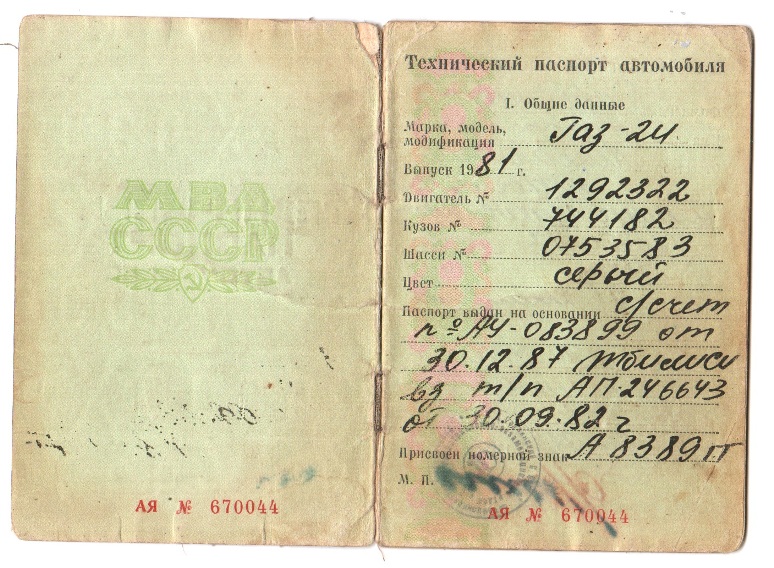 МВД
СССР
АЯ № 670044
Технический паспорт автомобиля
I. Общие данные
Марка, модель, Газ-24
модификация
Выпуск 1981 г.
Двигатель № 1292322
Кузов № 744182
Шасси № 0753583
Цвет серый
Паспорт выдан на основании с/счет
№ АУ-083899 от
30.12.87 Тбилиси
вз т/п АП-246643
от 30.09.82 г
Присвоен номерной знак А 8389 ГГ
М. П.
АЯ № 670044